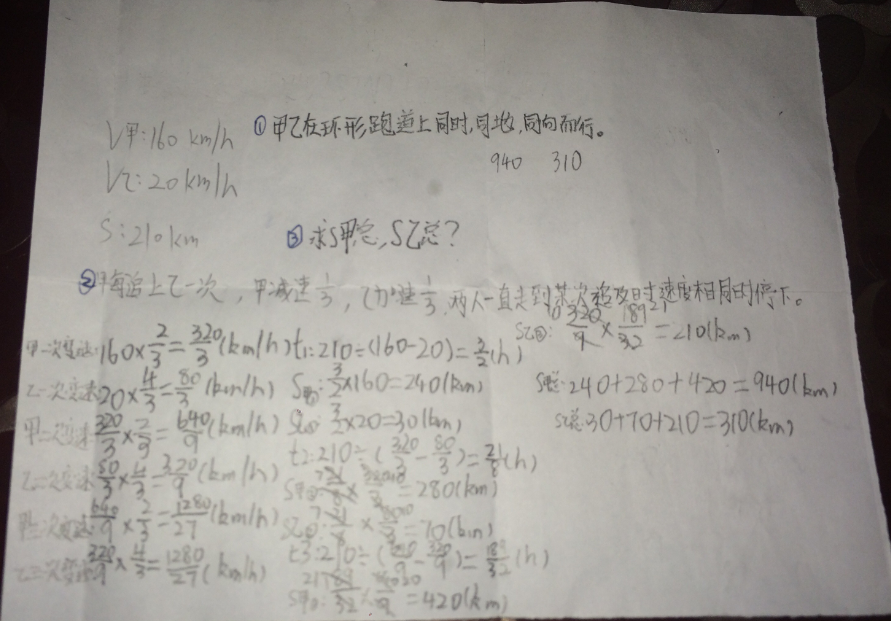 V甲:160 km/h
①甲乙在环形跑道上同时,同地,同向而行。
940 310
V乙:20km/h
S:210km
③求S甲总,S乙总?
②甲每追上乙一次,甲减速1/3,乙加速1/3,两人一直走到某次追及时速度相同时停下。
甲一次变速:160×2/3=320/3(km/h)
乙一次变速:20×4/3=80/3(km/h)
甲二次变速:320/3×2/3=640/9(km/h)
乙二次变速:80/3×4/3=320/9(km/h)
甲三次变速:640/9×2/3=1280/27(km/h)
乙三次变速:320/9×4/3=1280/27(km/h)
t1:210÷(160-20)=3/2(h)
S甲①:3/2×160=240(km)
S乙①:3/2×20=30(km)
t2:210÷(320/3-80/3)=21/8(h)
=280(km)
=70(km)
t3:210÷(640/9-320/9)=189/32(h)
=420(km)
S乙③:320/9×189/32=210(km)
S甲总:240+280+420=940(km)
S乙总:30+70+210=310(km)